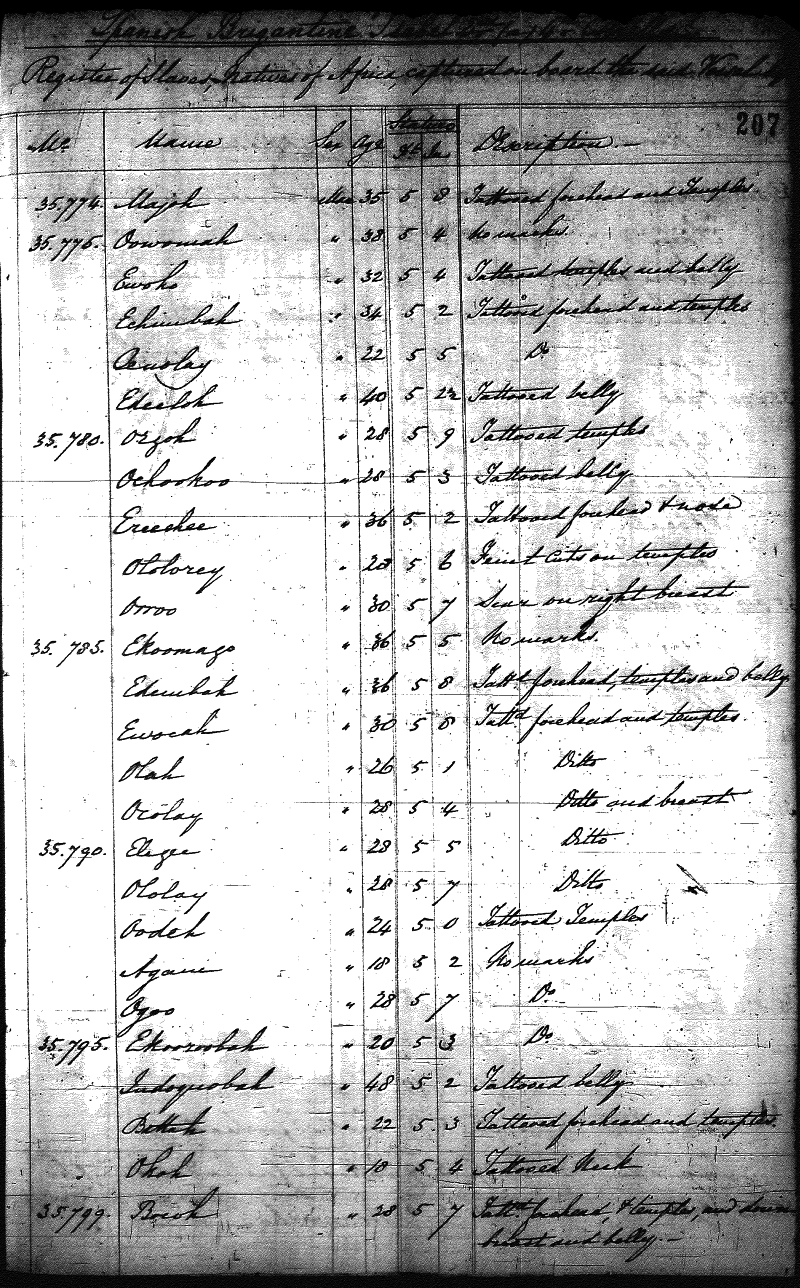 Spanish Brigantine Isabel
Register of Slaves, Natives of Africa, captured on board the said Vessel
207
No. Name Sex Age Stature Description
Ft. In.
35.774. Majoh Man 35 5 8 Tattooed forehead and Temples.
35.775. Oowomah " 38 5 4 No marks.
Ewoho " 32 5 4 Tattooed temples and belly
Echimbah " 34 5 2 Tattooed forehead and temples
" 22 5 5 Do
" 40 5 Tattooed belly
35.780. Oezoh " 28 5 9 Tattooed temples
Ochookoo " 28 5 3 Tattooed belly
Ereechee " 36 5 2 Tattooed forehead & nose
Ololorey " 28 5 6 Faint cuts on temples
Orroo " 30 5 7 Scar on right breast
35.785. Ekoomago " 36 5 5 No marks.
Edembah " 36 5 8 Tattd forehead, temples and belly
Ewocah " 30 5 8 Tattd forehead and temples.
Olah " 26 5 1 Ditto
Ocolay " 28 5 4 Ditto and breast
35.790. Elezee " 28 5 5 Ditto
Ololay " 28 5 7 Ditto
Oodeh " 24 5 0 Tattooed Temples
Agame " 18 5 2 No marks
Ogoo " 28 5 7 Do
35.795. Ekoozoobah " 20 5 3 Do
Indoquobah " 48 5 2 Tattooed belly
Betteh " 22 5 3 Tattooed forehead and temples.
Ohoh " 18 5 4 Tattooed Neck
35.799. " 28 5 7 Tattd forehead, & temples, and down
breast and belly.-